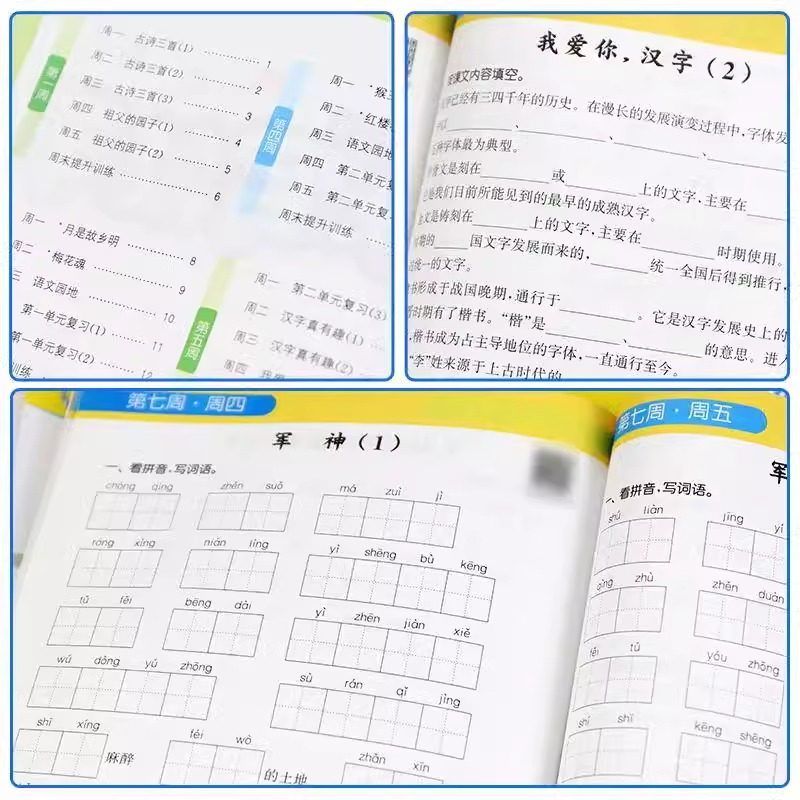 第一周
周一 古诗三首(1) ………… 1
周二 古诗三首(2) ………… 2
周三 古诗三首(3) ………… 3
周四 祖父的园子(1) ………… 4
周五 祖父的园子(2) ………… 5
周末提升训练 ………… 6
周一 *月是故乡明 ………… 8
周二 *梅花魂 ………… 9
周三 语文园地 ………… 10
第一单元复习(1) ……… 11
第一单元复习(2) ……… 12
升训练
第四周
周一 *猴
周二 *红楼
周三 语文园地
周四 第二单元
周五 第二单元复
周末提升训练
第五周
周一 第二单元复习(3)
周二 汉字真有趣(1)
周三 汉字真有趣(2)
周四 我爱
我爱你,汉字(2)
课文内容填空。
已经有三四千年的历史。在漫长的发展演变过程中,字体发
、 、 、
种字体最为典型。
骨文是刻在 或 上的文字,主要在
是我们目前所能见到的最早的成熟汉字。
金文是铸刻在 上的文字,主要在 时期使用。
时期的 国文字发展而来的, 统一全国后得到推行,
统一的文字。
书形成于战国晚期,通行于 。它是汉字发展史上的
时期有了楷书。“楷”是 、 的意思。进入
楷书成为占主导地位的字体,一直通行至今。
“李”姓来源于上古时代的
第七周·周四
军 神(1)
一、看拼音,写词语。
chóng qìng zhěn suǒ má zuì jì
róng xíng nián líng yì shēng bù kēng
tǔ fěi bēng dài yì zhēn jiàn xiě
wú dòng yú zhōng sù rán qǐ jìng
shī xíng 麻醉 féi wò 的土地 zhǎn xīn
第七周·周五
军
一、看拼音,写词语。
shú liàn jīng yì
qìng zhù zhěn duàn
fěi tú yóu zhōng
shī shǐ kēng shēng